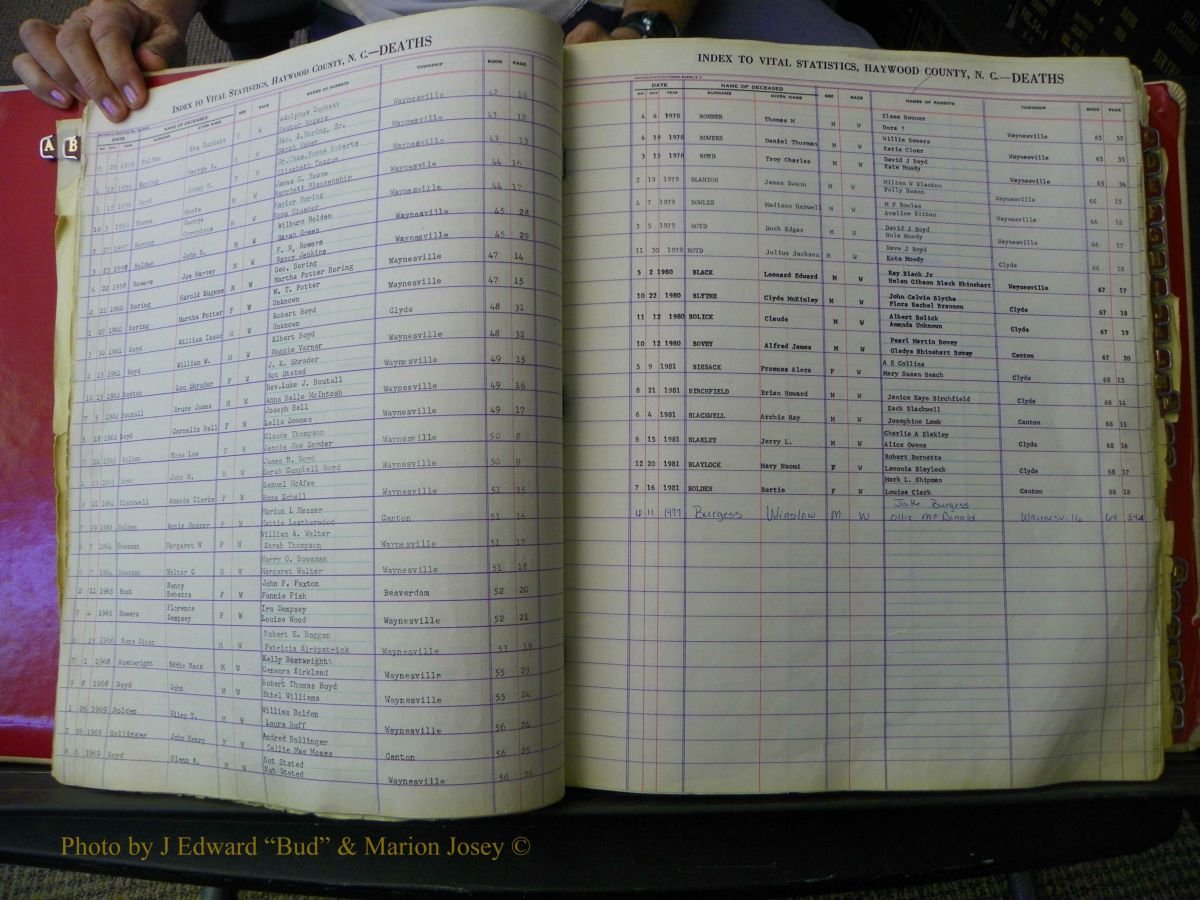 A B
INDEX TO VITAL STATISTICS, HAYWOOD COUNTY, N. C.—DEATHS
DATE NAME OF DECEASED SEX RACE NAMES OF PARENTS TOWNSHIP BOOK PAGE
Bolden Eva Duckett F W Adolphus Duckett Waynesville 42 10
Hester Rogers
Boring George A. Geo. A. Boring, Sr. Waynesville 43 12
Boyd F W Dr. Chas. Boone Roberts Waynesville 43 33
Elizabeth Teague
Boone James C. Boone Waynesville 44 16
Harriett Blankenship
Boring George Kaylor Boring Waynesville 44 17
Bolden John H. M W Wilburn Bolden Waynesville 45 28
Sarah Green
1958 Bowers Joe Harvey M W F. N. Bowers Waynesville 45 29
Nancy Jenkins
1960 Boring Harold Eugene M W Geo. Boring Waynesville 47 14
Martha Potter Boring
1960 Boring Martha Potter F W W. T. Potter Waynesville 47 15
Unknown
1961 Boyd William Isaac M W Robert Boyd Clyde 48 31
Unknown
1961 Boyd William W. M W Elbert Boyd Waynesville 48 32
Maggie Varner
Lou Shrader F W J. E. Shrader Waynesville 49 15
Not Stated
1962 Boutall Bruce James M W Rev. Luke J. Boutall Waynesville 49 16
Anna Belle McIntosh
1962 Boyd Cornelia Bell F W Joseph Bell Waynesville 49 17
Lelia Downes
Bolden Rosa Lee F W Claude Thompson Waynesville 50 8
Jennie Mae Snyder
John W. M W James R. Boyd Waynesville 50 9
Sarah Campbell Boyd
Blackwell Amanda Clarke F W Samuel McAfee Waynesville 51 15
Enns Schell
Bolden Annie Messer F W Marion L Messer Canton 51 16
Mattie Leatherwood
1964 Bowsman Margaret W F W William A. Walter Waynesville 51 17
Sarah Thompson
1964 Bowsman Walter C M W Harry O. Bowsman Waynesville 51 18
Margaret Walter
2 11 1965 Best Nancy Rebecca F W John F. Paxton Beaverdam 52 20
Fannie Fish
7 4 1965 Bowers Florence Dempsey F W Ira Dempsey Waynesville 52 21
Louise Wood
1966 None Given M W Robert E. Boggan Waynesville 53 19
Patricia Kirkpatrick
7 1 1968 Boatwright Eddie Mack M W Kelly Boatwright Waynesville 55 23
Geneora Kirkland
9 8 1968 Boyd John M W Robert Thomas Boyd Waynesville 55 24
Ethel Williams
1 26 1969 Bolden Wiley T. M W William Bolden Waynesville 56 24
Laura Ruff
1969 Bollinger John Henry M W Andred Bollinger Canton 56 25
Callie Mae Moses
6 6 1969 Boyd Glenn A. M W Not Stated Waynesville 56 26
Not Stated
INDEX TO VITAL STATISTICS, HAYWOOD COUNTY, N. C.—DEATHS
DATE NAME OF DECEASED SEX RACE NAMES OF PARENTS TOWNSHIP BOOK PAGE
MO. DAY YEAR SURNAME GIVEN NAME
4 4 1978 BONNER Thomas H M W Elzee Bonner Waynesville 65 32
Dora ?
4 19 1978 BOWERS Daniel Thurman M W Willie Bowers Waynesville 65 33
Katie Cloer
3 15 1978 BOYD Troy Charles M W David J Boyd Waynesville 65 34
Kate Moody
2 19 1979 BLANTON James Swann M W Milton W Blanton Waynesville 66 15
Polly Swann
4 7 1979 BOWLES Madison Harwell M W M F Bowles Waynesville 66 16
Avaline Sitton
3 5 1979 BOYD Dock Edgar M W David J Boyd Waynesville 66 17
Nola Moody
11 30 1979 BOYD Julius Jackson M W Dave J Boyd Clyde 66 18
Kate Moody
5 2 1980 BLACK Leonard Edward M W Ray Black Jr Waynesville 67 17
Helen Gibson Black Rhinehart
10 22 1980 BLYTHE Clyde McKinley M W John Calvin Blythe Clyde 67 18
Flora Rachel Brannon
11 12 1980 BOLICK Claude M W Albert Bolick Clyde 67 19
Amanda Unknown
10 12 1980 BOVEY Alfred James M W Pearl Martin Bovey Canton 67 20
Gladys Rhinehart Bovey
5 9 1981 BIESACK Frances Alern F W A E Collins Clyde 68 13
Mary Susan Beach
8 21 1981 BIRCHFIELD Brian Howard M W Janice Kaye Birchfield Clyde 68 14
6 4 1981 BLACKWELL Archie Ray M W Zack Blackwell Canton 68 15
Josephine Lamb
8 15 1981 BLAKLEY Jerry L. M W Charlie A Blakley Clyde 68 16
Alice Owens
12 20 1981 BLAYLOCK Mary Naomi F W Robert Burnette Clyde 68 17
Lavonia Blaylock
7 16 1981 BOLDEN Bertie F W Mark L. Shipman Canton 68 18
Louisa Clark
6 11 1977 Burgess Winslow M W Jake Burgess Waynesville 64 34A
Ollie McDonald
Photo by J Edward “Bud” & Marion Josey ©